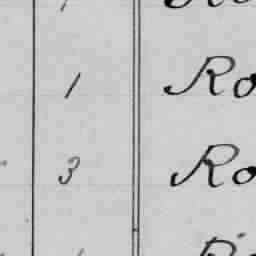 1 Ro
3 Ro